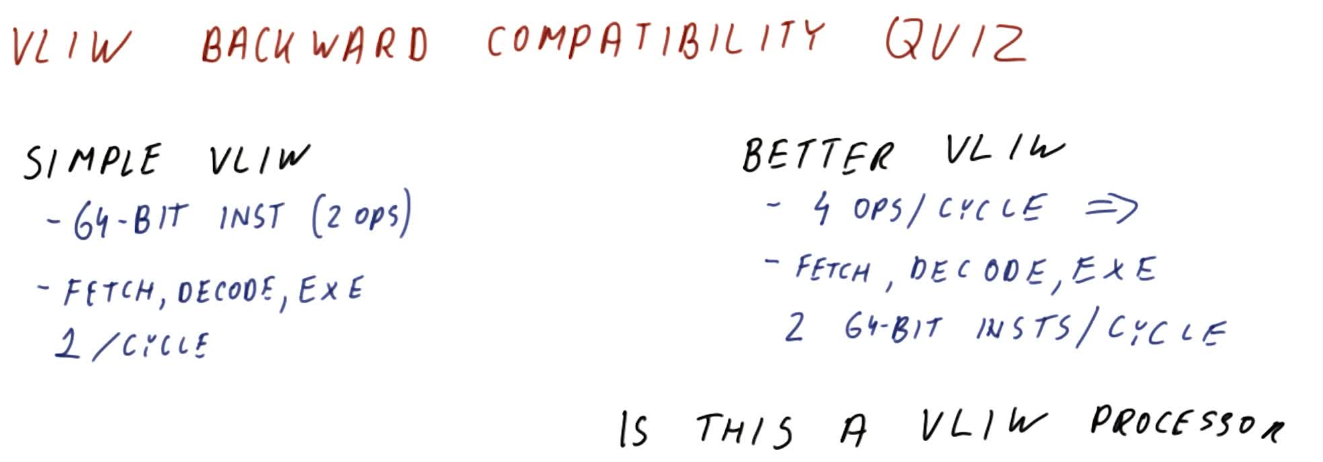 VLIW BACKWARD COMPATIBILITY QUIZ
SIMPLE VLIW
- 64-BIT INST (2 OPS)
- FETCH, DECODE, EXE
1/CYCLE
BETTER VLIW
- 4 OPS/CYCLE =>
- FETCH, DECODE, EXE
2 64-BIT INSTS/CYCLE
IS THIS A VLIW PROCESSOR